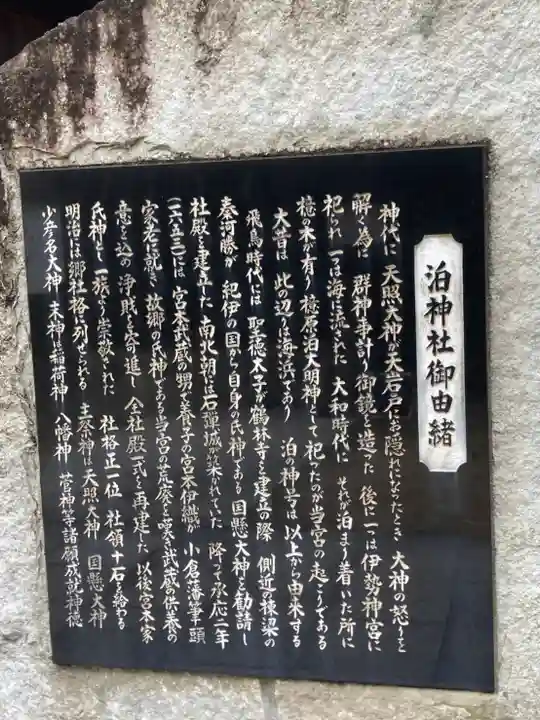 泊神社御由緒
神代に 天照大神が天岩戸にお隠れになったとき 大神の怒りを
解く為に 群神事計り 御鏡を造った 後に一つは伊勢神宮に
祀られ 一つは海に流された 大和時代に それが泊まり着いた所に
檍の木が有り 檍原泊大明神として祀ったのが当宮の起こりである
大昔は 此の辺りは海浜であり 泊の神号は以上から由来する
飛鳥時代には 聖徳太子が鶴林寺を建立の際 側近の棟梁の
秦河勝が 紀伊の国から自身の氏神である 国懸大神を勧請し
社殿を建立した 南北朝には石弾城が築かれていた 降って承応二年
(一六五三)には 宮本武蔵の甥で養子の宮本伊織が 小倉藩筆頭
家老に就き 故郷の氏神である当宮の荒廃を嘆き武蔵の供養の
意を込め 浄財を寄進し 全社殿一式を再建した 以後宮本家
氏神とし一族より崇敬された 社格正一位 社領十石を給わる
明治には郷社格に列せられる 主祭神は 天照大神 国懸大神
少彦名大神 末神は稲荷神 八幡神 菅神等諸願成就神徳